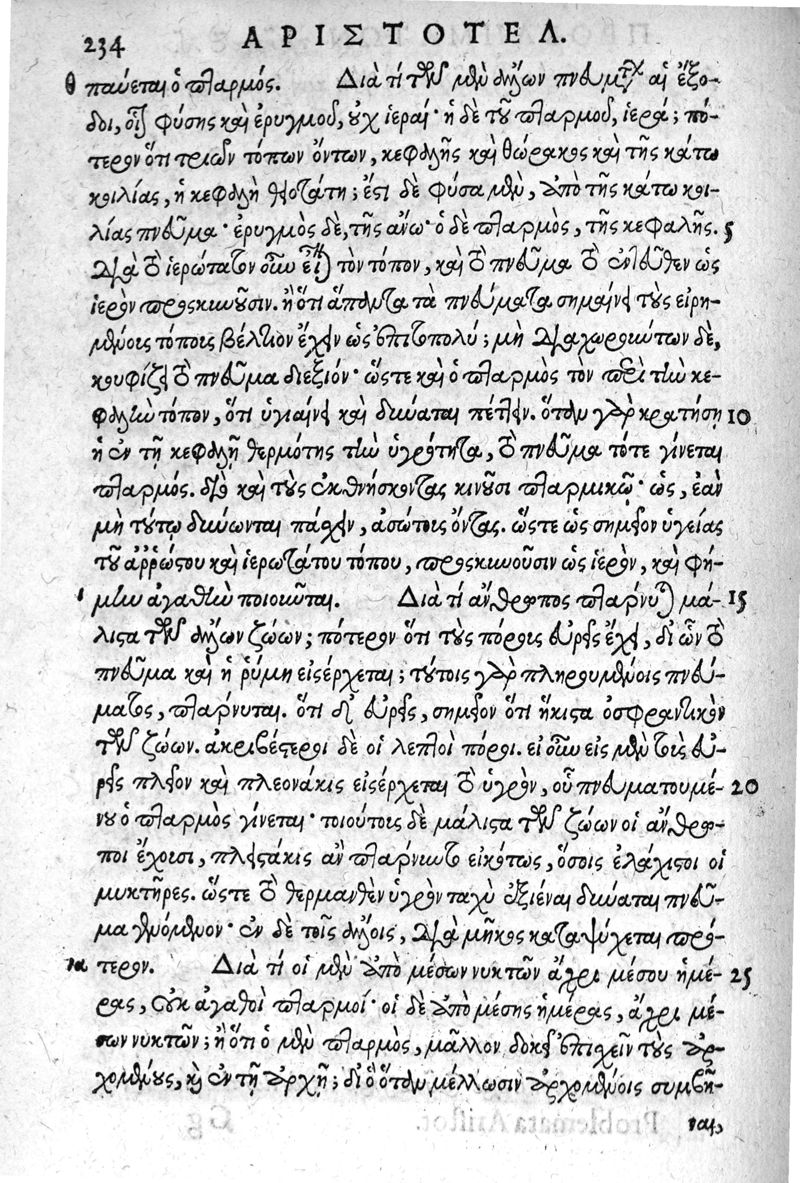 234 ΑΡΙΣΤΟΤΕΛ.
θ παύεται ὁ πταρμός. Διὰ τί τῶν μὲν ἄλλων πνευμάτων αἱ ἔξο-
δοι, οἷον φύσης καὶ ἐρυγμοῦ, οὐχ ἱεραί· ἡ δὲ τοῦ πταρμοῦ, ἱερά; πό-
τερον ὅτι τριῶν τόπων ὄντων, κεφαλῆς καὶ θώρακος καὶ τῆς κάτω
κοιλίας, ἡ κεφαλὴ θειοτάτη; ἔστι δὲ φύσα μὲν, ἀπὸ τῆς κάτω κοι-
λίας πνεῦμα· ἐρυγμὸς δὲ, τῆς ἄνω· ὁ δὲ πταρμὸς, τῆς κεφαλῆς. 5
διὰ τὸ ἱερώτατον οὖν εἶναι τὸν τόπον, καὶ τὸ πνεῦμα τὸ ἐντεῦθεν ὡς
ἱερὸν προσκυνοῦσιν. ἢ ὅτι ἅπαντα τὰ πνεύματα σημαίνει τοὺς εἰρη-
μένοις τόποις βέλτιον ἔχειν ὡς ἐπιτοπολύ; μὴ διαχωρούντων δὲ,
κουφίζει τὸ πνεῦμα διεξιόν· ὥστε καὶ ὁ πταρμὸς τὸν περὶ τὴν κε-
φαλὴν τόπον, ὅτι ὑγιαίνει καὶ δύναται πέττειν. ὅταν γὰρ κρατήσῃ 10
ἡ ἐν τῇ κεφαλῇ θερμότης τὴν ὑγρότητα, τὸ πνεῦμα τότε γίνεται
πταρμός. διὸ καὶ τοὺς ἐκθνήσκοντας κινοῦσι πταρμικῷ· ὡς, ἐὰν
μὴ τούτῳ δύνωνται πάσχειν, ἀσώτους ὄντας. ὥστε ὡς σημεῖον ὑγείας
τοῦ ἀῤῥώστου καὶ ἱερωτάτου τόπου, προσκυνοῦσιν ὡς ἱερὸν, καὶ φή-
ι μην ἀγαθὴν ποιοῦνται. Διὰ τί ἄνθρωπος πτάρνυται μά- 15
λιστα τῶν ἄλλων ζώων; πότερον ὅτι τοὺς πόρους εὐρεῖς ἔχει, δι ὧν τὸ
πνεῦμα καὶ ἡ ῥύμη εἰσέρχεται; τούτοις γὰρ πληρουμένοις πνεύ-
ματος, πτάρνυται. ὅτι δ εὐρεῖς, σημεῖον ὅτι ἥκιστα ὀσφραντικὸν
τῶν ζώων. ἀκριβέστεροι δὲ οἱ λεπτοὶ πόροι. εἰ οὖν εἰς μὲν τοὺς εὐ-
ρεῖς πλεῖον καὶ πλεονάκις εἰσέρχεται τὸ ὑγρὸν, οὗ πνευματουμέ- 20
νου ὁ πταρμὸς γίνεται· τοιούτους δὲ μάλιστα τῶν ζώων οἱ ἄνθρω-
ποι ἔχουσι, πλειστάκις ἂν πτάρνυντο εἰκότως, ὅσοις ἐλάχιστοι οἱ
μυκτῆρες. ὥστε τὸ θερμανθὲν ὑγρὸν ταχὺ ἐξιέναι δύναται πνεῦ-
μα γενόμενον· ἐν δὲ τοῖς ἄλλοις, διὰ μῆκος καταψύχεται πρό-
ια τερον. Διὰ τί οἱ μὲν ἀπὸ μέσων νυκτῶν ἄχρι μέσου ἡμέ- 25
ρας, οὐκ ἀγαθοὶ πταρμοί· οἱ δὲ ἀπὸ μέσης ἡμέρας, ἄχρι μέ-
σων νυκτῶν; ἢ ὅτι ὁ μὲν πταρμὸς, μᾶλλον δοκεῖ ἐπισχεῖν τοὺς ἀρ-
χομένους, καὶ ἐν τῇ ἀρχῇ; διὸ ὅταν μέλλωσιν ἀρχομένοις συμβῆ-
ναι,